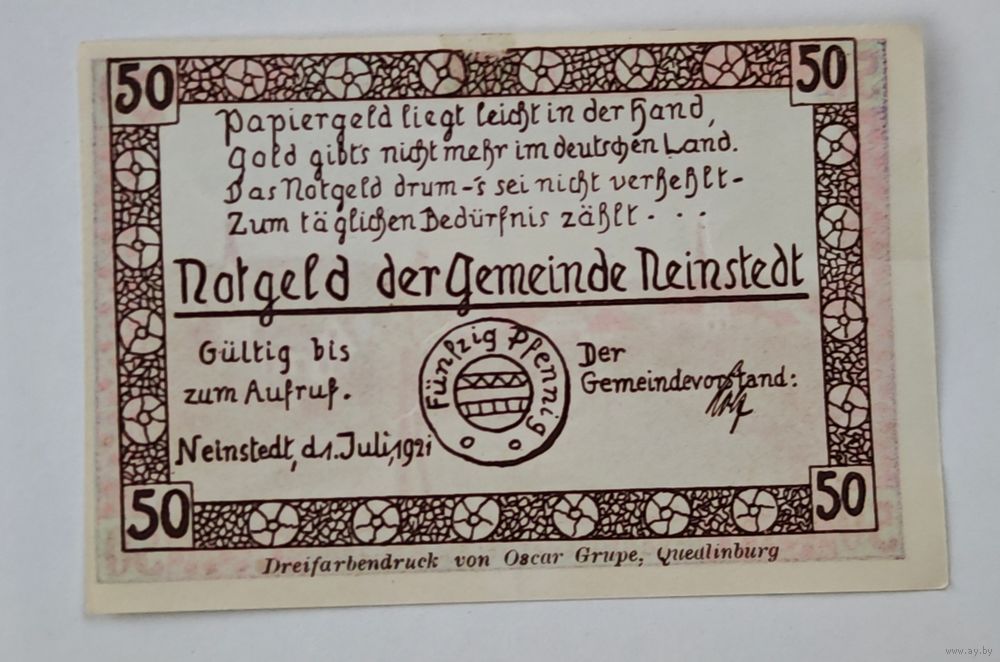 50
50
Papiergeld liegt leicht in der Hand,
Gold gibt's nicht mehr im deutschen Land.
Das Notgeld drum -'s sei nicht verhehlt-
Zum täglichen Bedürfnis zählt . . .
Notgeld der Gemeinde Neinstedt
Gültig bis
zum Aufruf.
Fünfzig Pfennig
Der
Gemeindevorstand:
Neinstedt, d. 1. Juli, 1921
50
50
Dreifarbendruck von Oscar Grupe, Quedlinburg
www.ay.by